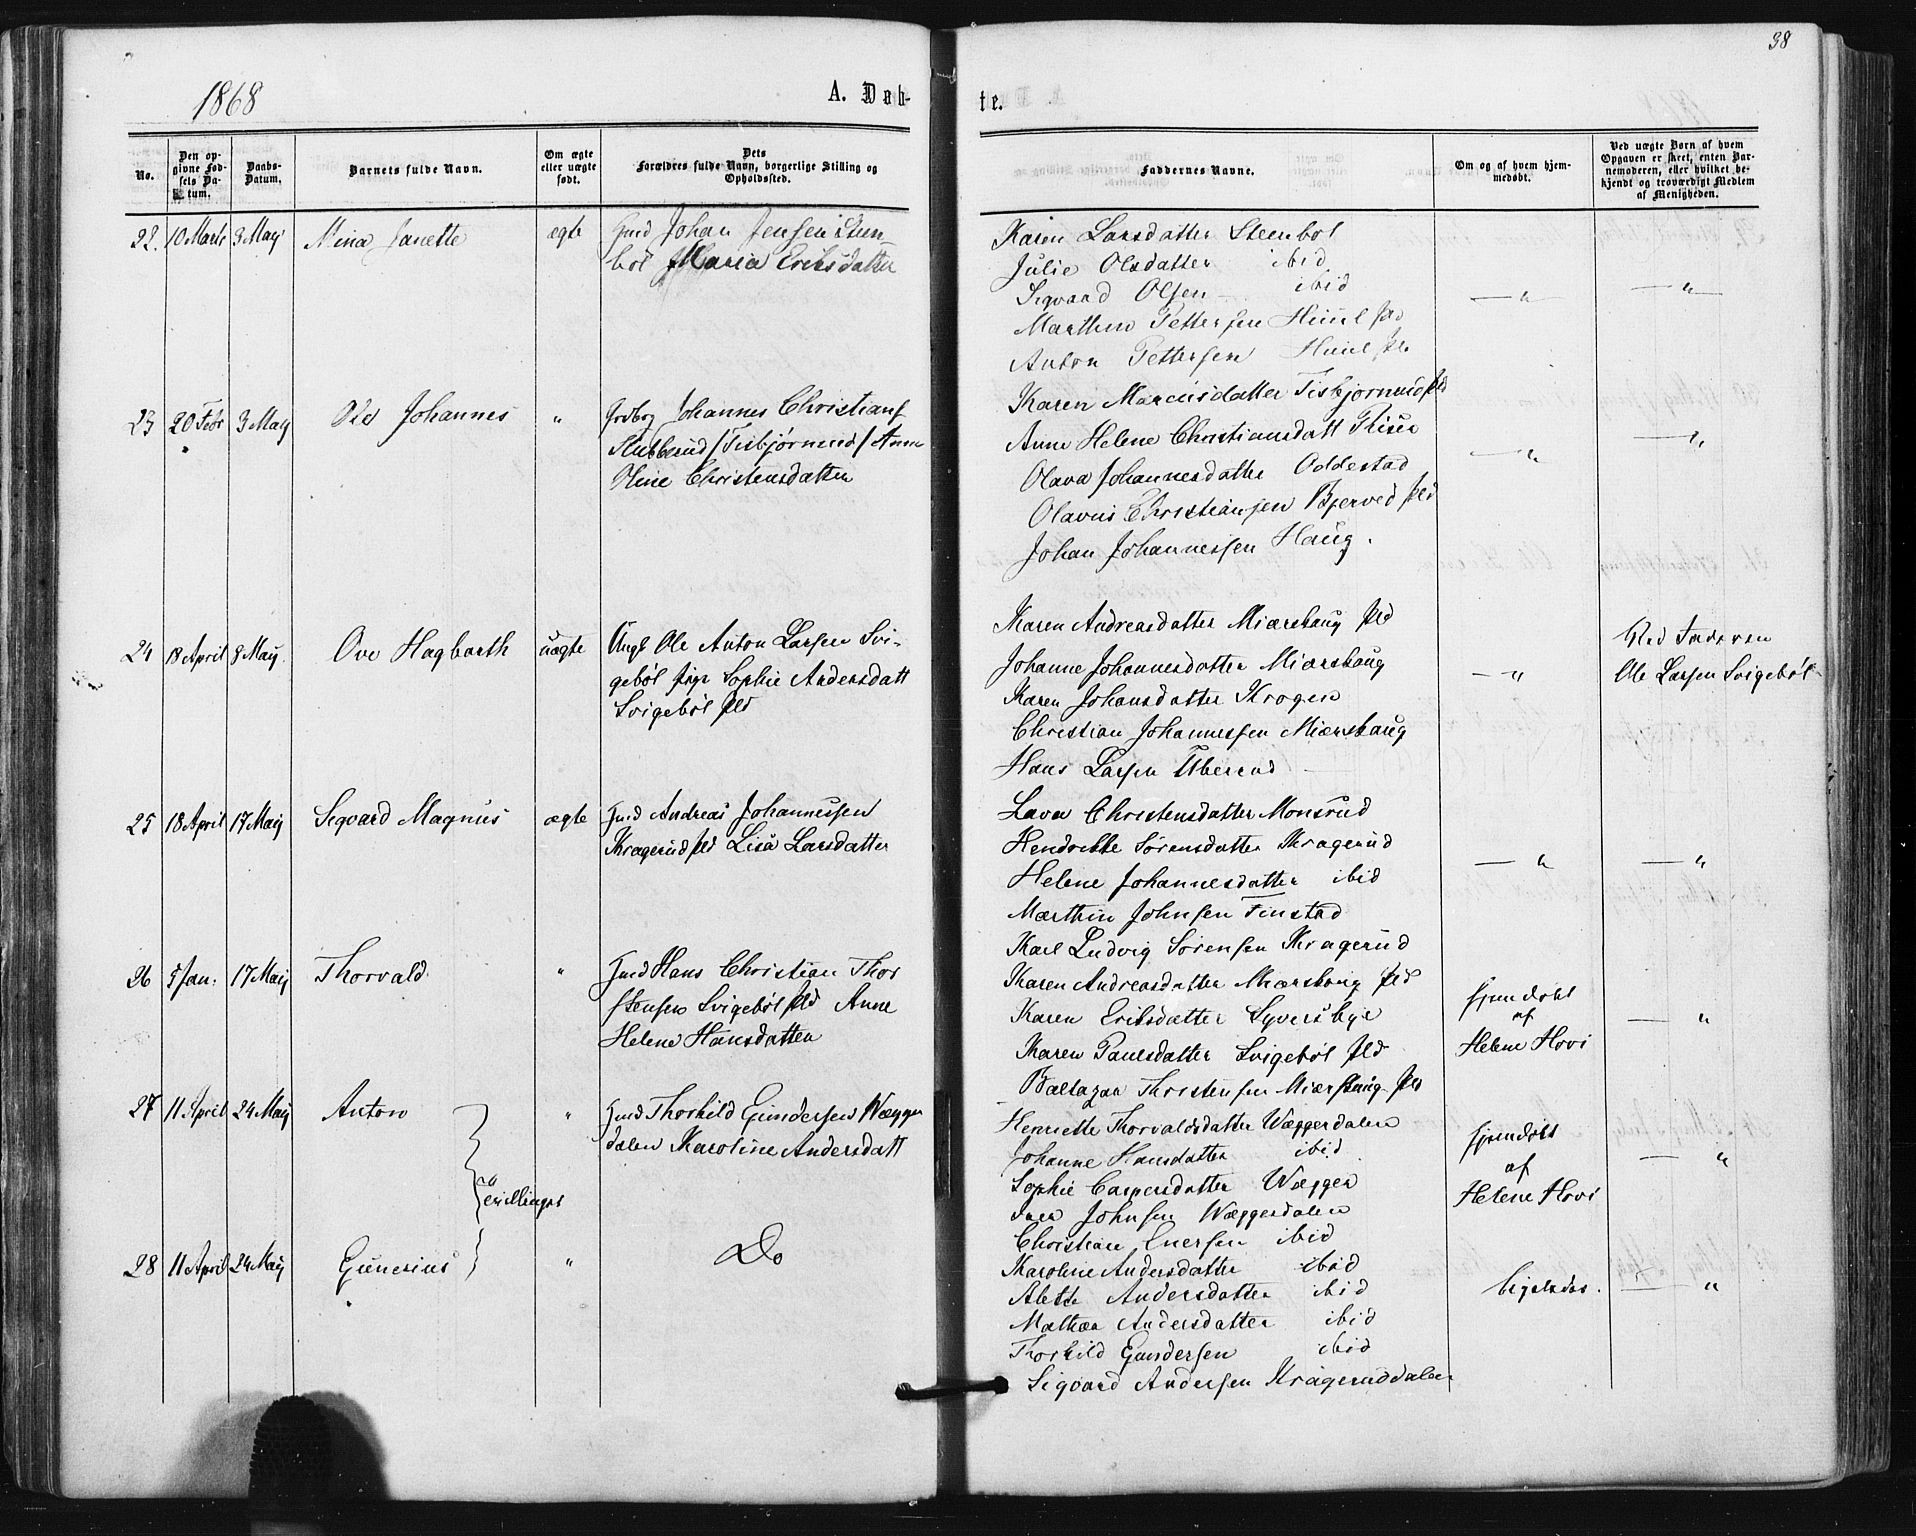 38
1868
A. Døb-
te.
No.
Den op-
givne Fød-
sels Da-
tum.
Daabs-
Datum.
Barnets fulde Navn.
Om ægte
eller uægte
født.
Dets
Forældres fulde Navn, borgerlige Stilling og
Opholdssted.
Faddernes Navne.
Om og af hvem hjem-
medøbt.
Ved uægte Børn af hvem
Opgaven er skeet, enten Bar-
nemoderen, eller hvilket be-
kjendt og troværdigt Medlem
af Menigheden.
22. 10 Marts 3 Maÿ Mina Janette ægte Gmd Johan Jensen Steen-
bøl Maria Eriksdatter
Karen Larsdatter Steenbøl
Julie Olsdatter ibid
Sigvard Olsen ibid
— " — — " —
Marthin Pettersen
Anton Pettersen
23 20 Febr 3 Maÿ Ole Johannes " Johannes Christians
Stubberud / Fisbjørnrud / Anne
Oline Christensdatter
Karen Marcusdatter Fisbjørnrud pld
Anne Helene Christiansdatt
Olava Johannesdatter Oddestad
— " — — " —
Olavus Christiansen Bjerved pld
Johan Johannessen Haug.
24 18 April 8 Maÿ. Ove Hagbarth uægte Ungk Ole Anton Larsen Svi-
gebøl pige Sophie Andersdatt
Svigebøl pld
Karen Andreasdatter Miærskaug pld
Johanne Johannesdatter Miærskaug
Karen Johansdatter Krogen
Christian Johannessen Miærskaug
Hans Larsen
— "
Ved Faderen
Ole Larsen Svigebøl
25 18 April 17 Maÿ Sigvard Magnus ægte Gmd Andreas Johannessen
Kragerud pld Lisa Larsdatter
Lava Christensdatter Monsrud
Hendrekke Sørensdatter Kragerud
Helene Johannesdatter ibid
— " — "
Marthin Johnsen Finstad
Karl Ludvig Sørensen Kragerud
26 5 Jan. 17 Maÿ Thorvald. " Gmd Hans Christian Thor
stensen Svigebøl pld Anne
Helene Hansdatter
Karen Andreasdatter Miærskaug pld
Karen Eriksdatter Syversbye
Karen Paulsdatter Svigebøl pld
Baltazar Thorstensen Miærskaug pld
hjemdøbt
af
Helene Hovi
— "
27 11 April 24 Maÿ Anton " Gmd Thorkild Gundersen Wægger
dalen Karoline Andersdatt
Tvillinger
Henriette Thorvaldsdatter Wæggerdalen
Johanne Hansdatter ibid
Sophie Caspersdatter Wægger
Iver Johnsen Wæggerdalen
Christian Enersen ibid
hjemdøbt
af
Helene Hovi
— "
28 11 April 24 Maÿ Gunerius " Do
Karoline Andersdatter ibid
Alette Andersdatter ibid
Mathea Andersdatter ibid
Thorkild Gundersen ibid
Sigvard Andersen Krageruddalen
ligeledes.
— "